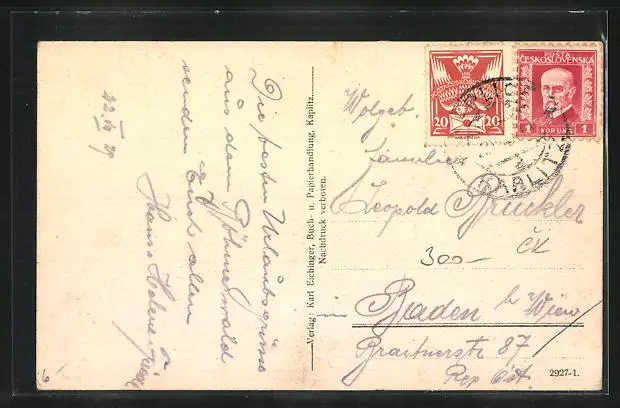 Die besten Urlaubsgrüsse
aus dem Böhmerwald
senden Euch allen
Hans, Helene u.
12. IV 29
Verlag: Karl Eichinger, Buch- u. Papierhandlung, Kaplitz.
Nachdruck verboten.
20 20
POŠTA
ČESKOSLOVENSKA
1 KORUNA 1
KAPLITZ
Wolgeb.
Leopold Bruckler
300- ČK
in Baden b Wien
Braitnerstr 87
Rep Öst.
2927-1.